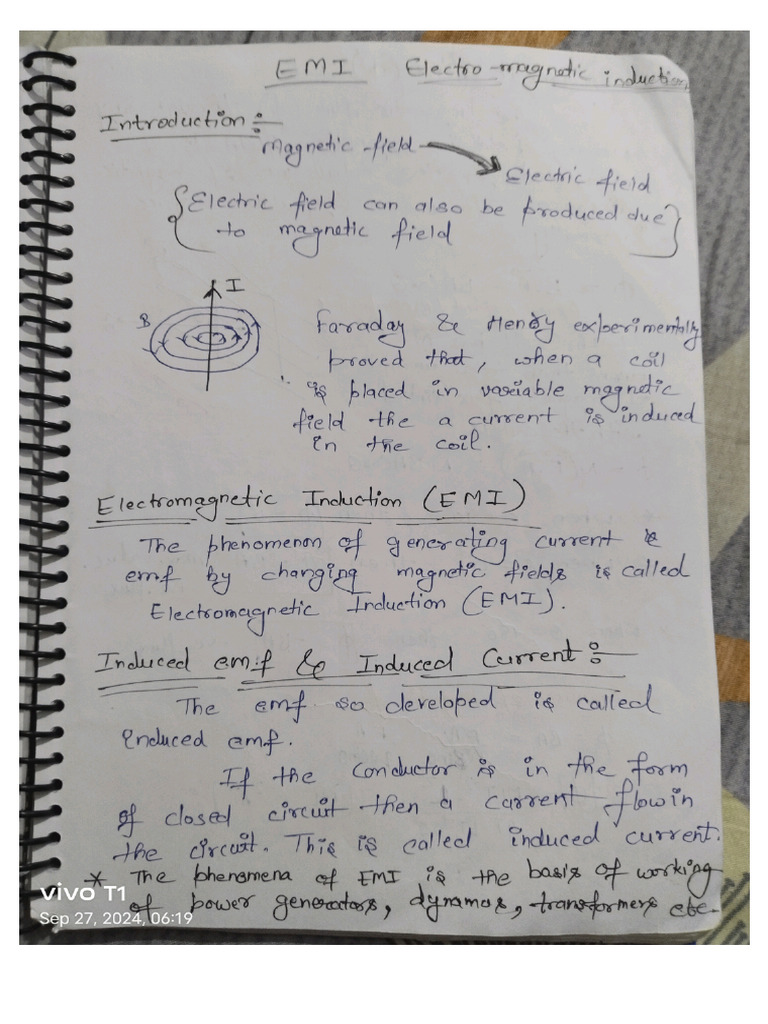 EMI Electro-magnetic induction
Introduction :-
Magnetic field
Electric field
{Electric field can also be produced due
to magnetic field}
I
B
Faraday & Henry experimentally
proved that, when a coil
is placed in variable magnetic
field the a current is induced
in the coil.
Electromagnetic Induction (EMI)
The phenomenon of generating current &
emf by changing magnetic fields is called
Electromagnetic Induction (EMI).
Induced emf & Induced Current :-
The emf so developed is called
induced emf.
If the conductor is in the form
of closed circuit then a current flow in
the circuit. This is called induced current.
* The phenomena of EMI is the basis of working
of power generators, dynamos, transformers etc.
vivo T1
Sep 27, 2024, 06:19